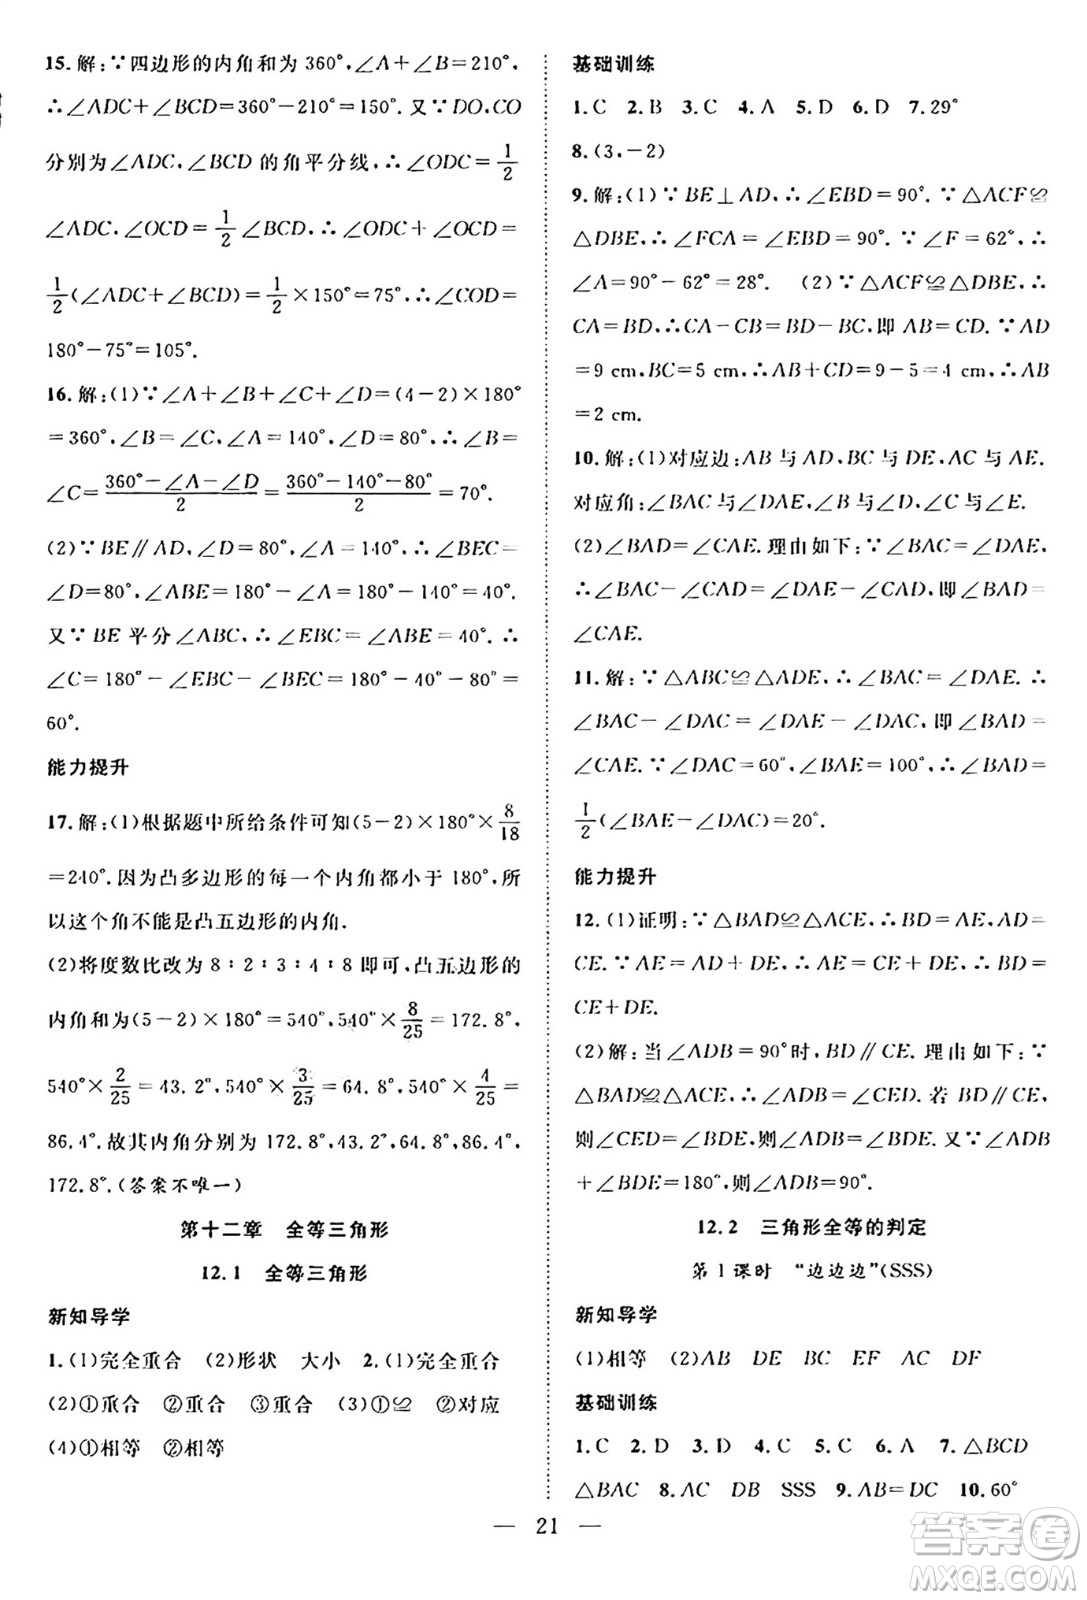 15.解:∵四边形的内角和为360°,∠A+∠B=210°,
∴∠ADC+∠BCD=360°-210°=150°.又∵DO,CO
分别为∠ADC,∠BCD的角平分线,∴∠ODC=1/2
∠ADC,∠OCD=1/2∠BCD,∴∠ODC+∠OCD=
1/2(∠ADC+∠BCD)=1/2×150°=75°,∴∠COD=
180°-75°=105°.
16.解:(1)∵∠A+∠B+∠C+∠D=(4-2)×180°
=360°,∠B=∠C,∠A=140°,∠D=80°,∴∠B=
∠C=(360°-∠A-∠D)/2=(360°-140°-80°)/2=70°.
(2)∵BE∥AD,∠D=80°,∠A=140°,∴∠BEC=
∠D=80°,∠ABE=180°-∠A=180°-140°=40°.
又∵BE平分∠ABC,∴∠EBC=∠ABE=40°.∴
∠C=180°-∠EBC-∠BEC=180°-40°-80°=
60°.
能力提升
17.解:(1)根据题中所给条件可知(5-2)×180°×8/18
=240°.因为凸多边形的每一个内角都小于180°,所
以这个角不能是凸五边形的内角.
(2)将度数比改为8:2:3:4:8即可,凸五边形的
内角和为(5-2)×180°=540°,540°×8/25=172.8°,
540°×2/25=43.2°,540°×3/25=64.8°,540°×4/25=
86.4°.故其内角分别为172.8°,43.2°,64.8°,86.4°,
172.8°.(答案不唯一)
第十二章 全等三角形
12.1 全等三角形
新知导学
1.(1)完全重合 (2)形状 大小 2.(1)完全重合
(2)①重合 ②重合 ③重合 (3)①≌ ②对应
(4)①相等 ②相等
基础训练
1.C 2.B 3.C 4.A 5.D 6.D 7.29°
8.(3,-2)
9.解:(1)∵BE⊥AD,∴∠EBD=90°.∵△ACF≌
△DBE,∴∠FCA=∠EBD=90°.∵∠F=62°,∴
∠A=90°-62°=28°. (2)∵△ACF≌△DBE,∴
CA=BD,∴CA-CB=BD-BC,即AB=CD.∵AD
=9 cm,BC=5 cm,∴AB+CD=9-5=4 cm,∴AB
=2 cm.
10.解:(1)对应边:AB与AD,BC与DE,AC与AE.
对应角:∠BAC与∠DAE,∠B与∠D,∠C与∠E.
(2)∠BAD=∠CAE.理由如下:∵∠BAC=∠DAE,
∴∠BAC-∠CAD=∠DAE-∠CAD,即∠BAD=
∠CAE.
11.解:∵△ABC≌△ADE,∴∠BAC=∠DAE.∴
∠BAC-∠DAC=∠DAE-∠DAC,即∠BAD=
∠CAE.∵∠DAC=60°,∠BAE=100°,∴∠BAD=
1/2(∠BAE-∠DAC)=20°.
能力提升
12.(1)证明:∵△BAD≌△ACE,∴BD=AE,AD=
CE.∵AE=AD+DE,∴BD=
CE+DE.
(2)解:当∠ADB=90°时,BD∥CE.理由如下:∵
△BAD≌△ACE,∴∠ADB=∠CED.若BD∥CE,
则∠CED=∠BDE,则∠ADB=∠BDE.又∵∠ADB
+∠BDE=180°,则∠ADB=90°.
12.2 三角形全等的判定
第1课时 “边边边”(SSS)
新知导学
(1)相等 (2)AB DE BC EF AC DF
基础训练
1.C 2.D 3.D 4.A 5.C 6.A 7.△BCD
△BAC 8.AC DB SSS 9.AB=DC 10.60°
— 21 —
答案卷
MXQE.COM